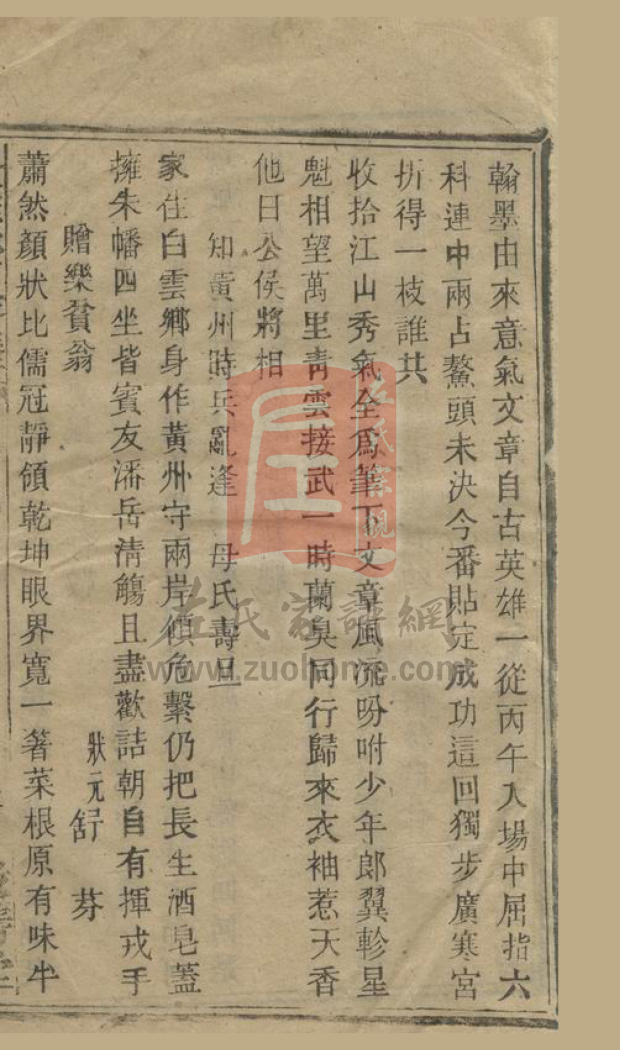 翰墨由來意氣文章自古英雄一從丙午入場中屈指六
科連中兩占鰲頭未決今番貼定成功這回獨步廣寒宮
折得一枝誰共
收拾江山秀氣全爲筆下文章風流吩咐少年郎翼軫星
魁相望萬里靑雲接武一時蘭臭同行歸來衣袖惹天香
他日公侯將相
知黃州時兵亂逢 母氏壽旦
家住白雲鄉身作黃州守兩岸傾危繫仍把長生酒皂蓋
擁朱幡四坐皆賓友潘岳清觴且盡歡詰朝自有揮戎手
贈樂貧翁
狀元舒芬
蕭然顏狀比儒冠靜領乾坤眼界寬一箸菜根原有味半
左氏家譜網
www.zuohome.com